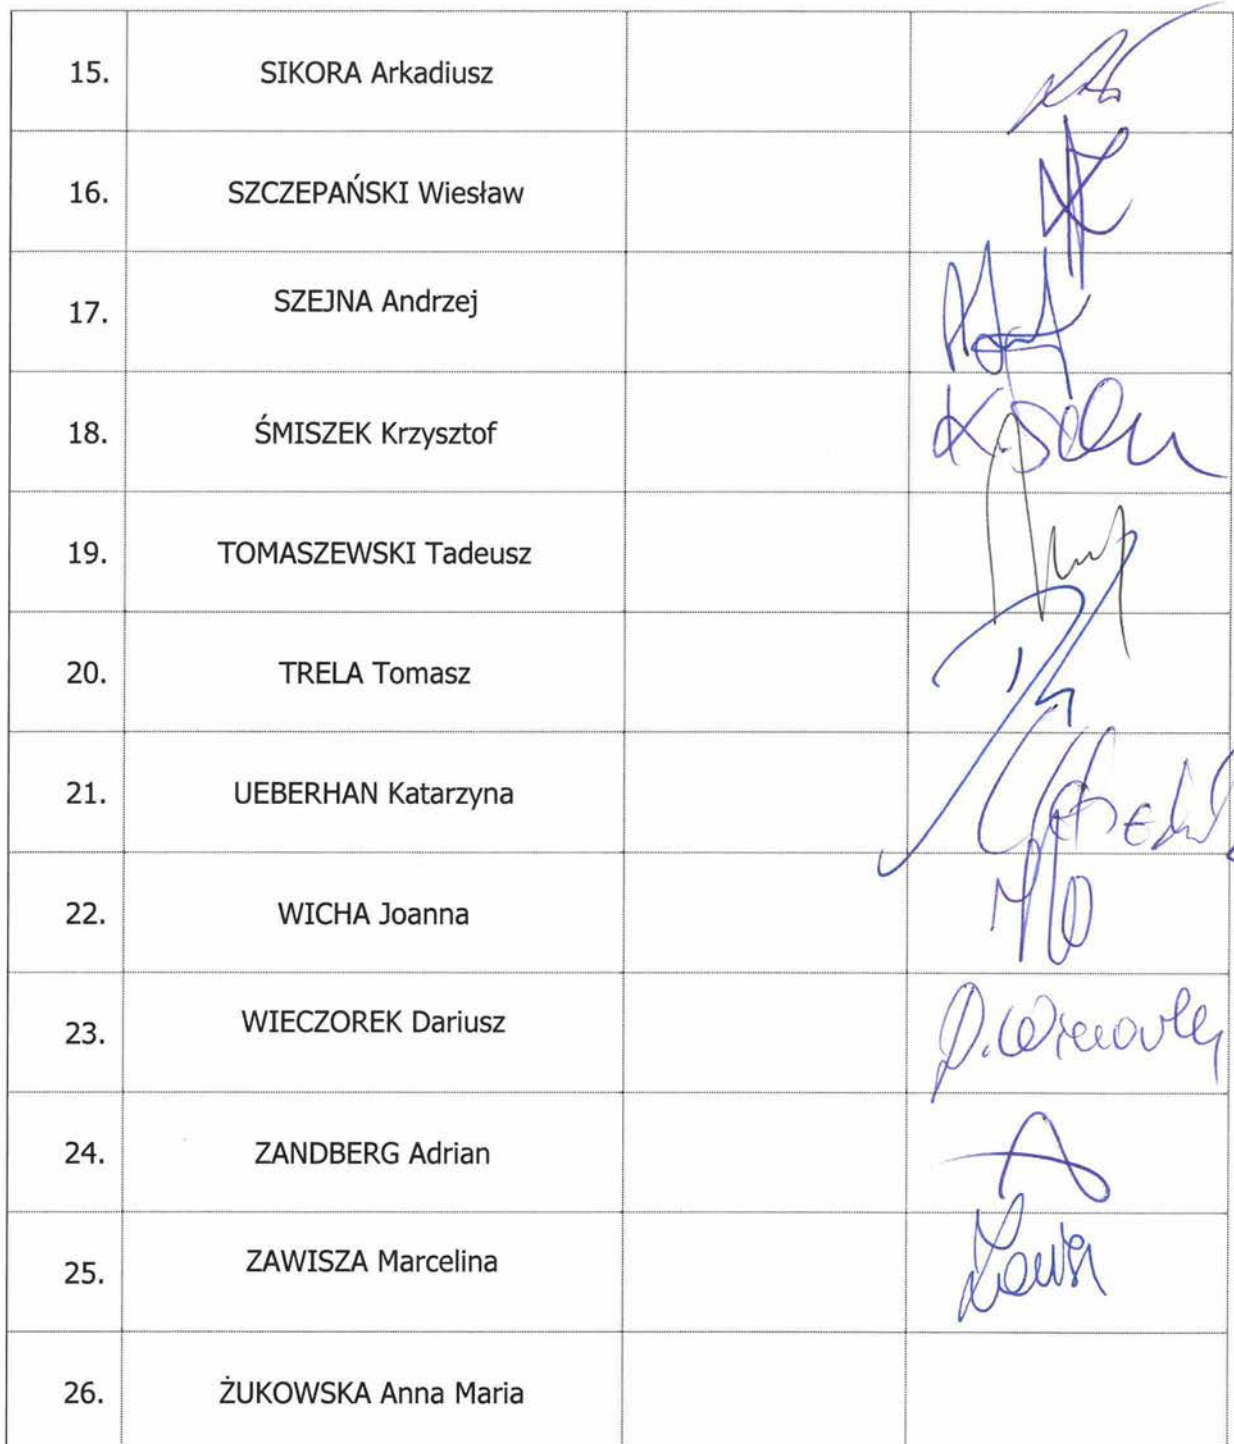 15. SIKORA Arkadiusz
16. SZCZEPAŃSKI Wiesław
17. SZEJNA Andrzej
18. ŚMISZEK Krzysztof
19. TOMASZEWSKI Tadeusz
20. TRELA Tomasz
21. UEBERHAN Katarzyna
22. WICHA Joanna
23. WIECZOREK Dariusz
24. ZANDBERG Adrian
25. ZAWISZA Marcelina
26. ŻUKOWSKA Anna Maria